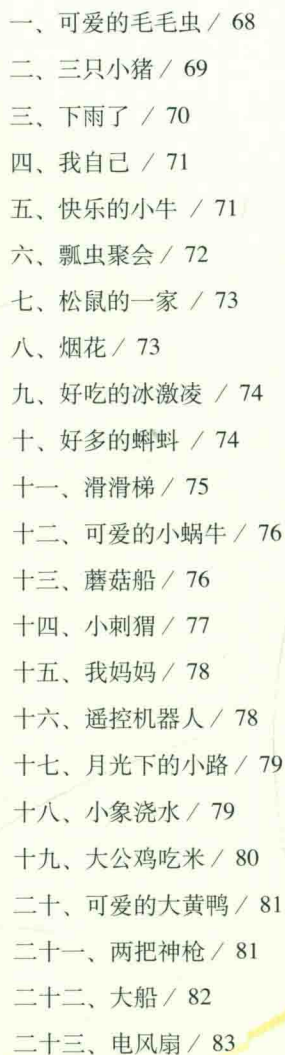 一、可爱的毛毛虫 / 68
二、三只小猪 / 69
三、下雨了 / 70
四、我自己 / 71
五、快乐的小牛 / 71
六、瓢虫聚会 / 72
七、松鼠的一家 / 73
八、烟花 / 73
九、好吃的冰激凌 / 74
十、好多的蝌蚪 / 74
十一、滑滑梯 / 75
十二、可爱的小蜗牛 / 76
十三、蘑菇船 / 76
十四、小刺猬 / 77
十五、我妈妈 / 78
十六、遥控机器人 / 78
十七、月光下的小路 / 79
十八、小象浇水 / 79
十九、大公鸡吃米 / 80
二十、可爱的大黄鸭 / 81
二十一、两把神枪 / 81
二十二、大船 / 82
二十三、电风扇 / 83